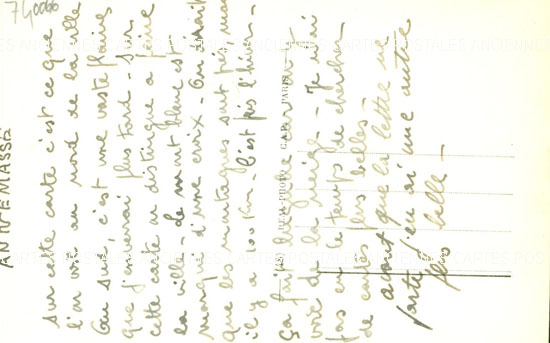 74000
ANNEMASSE
Sur cette carte c'est ce que
l'on voit au nord de la ville
Au sud, c'est une vaste plaine
que j'enverrai plus tard - Sur
cette carte on distingue à peine
la ville - Le mont blanc est
marqué d'une croix - On dirait
que les montagnes sont près mais
il y a 100 Km - C'est pris l'hiver -
Ça fait drôle car on
voit de la neige - Je n'ai
pas eu le temps de chercher
de cartes plus belles -
avant que la lettre
parte j'en ai une autre
plus belle -
PHOTO C.A.P. PARIS
CARTES POSTALES ANCIENNES